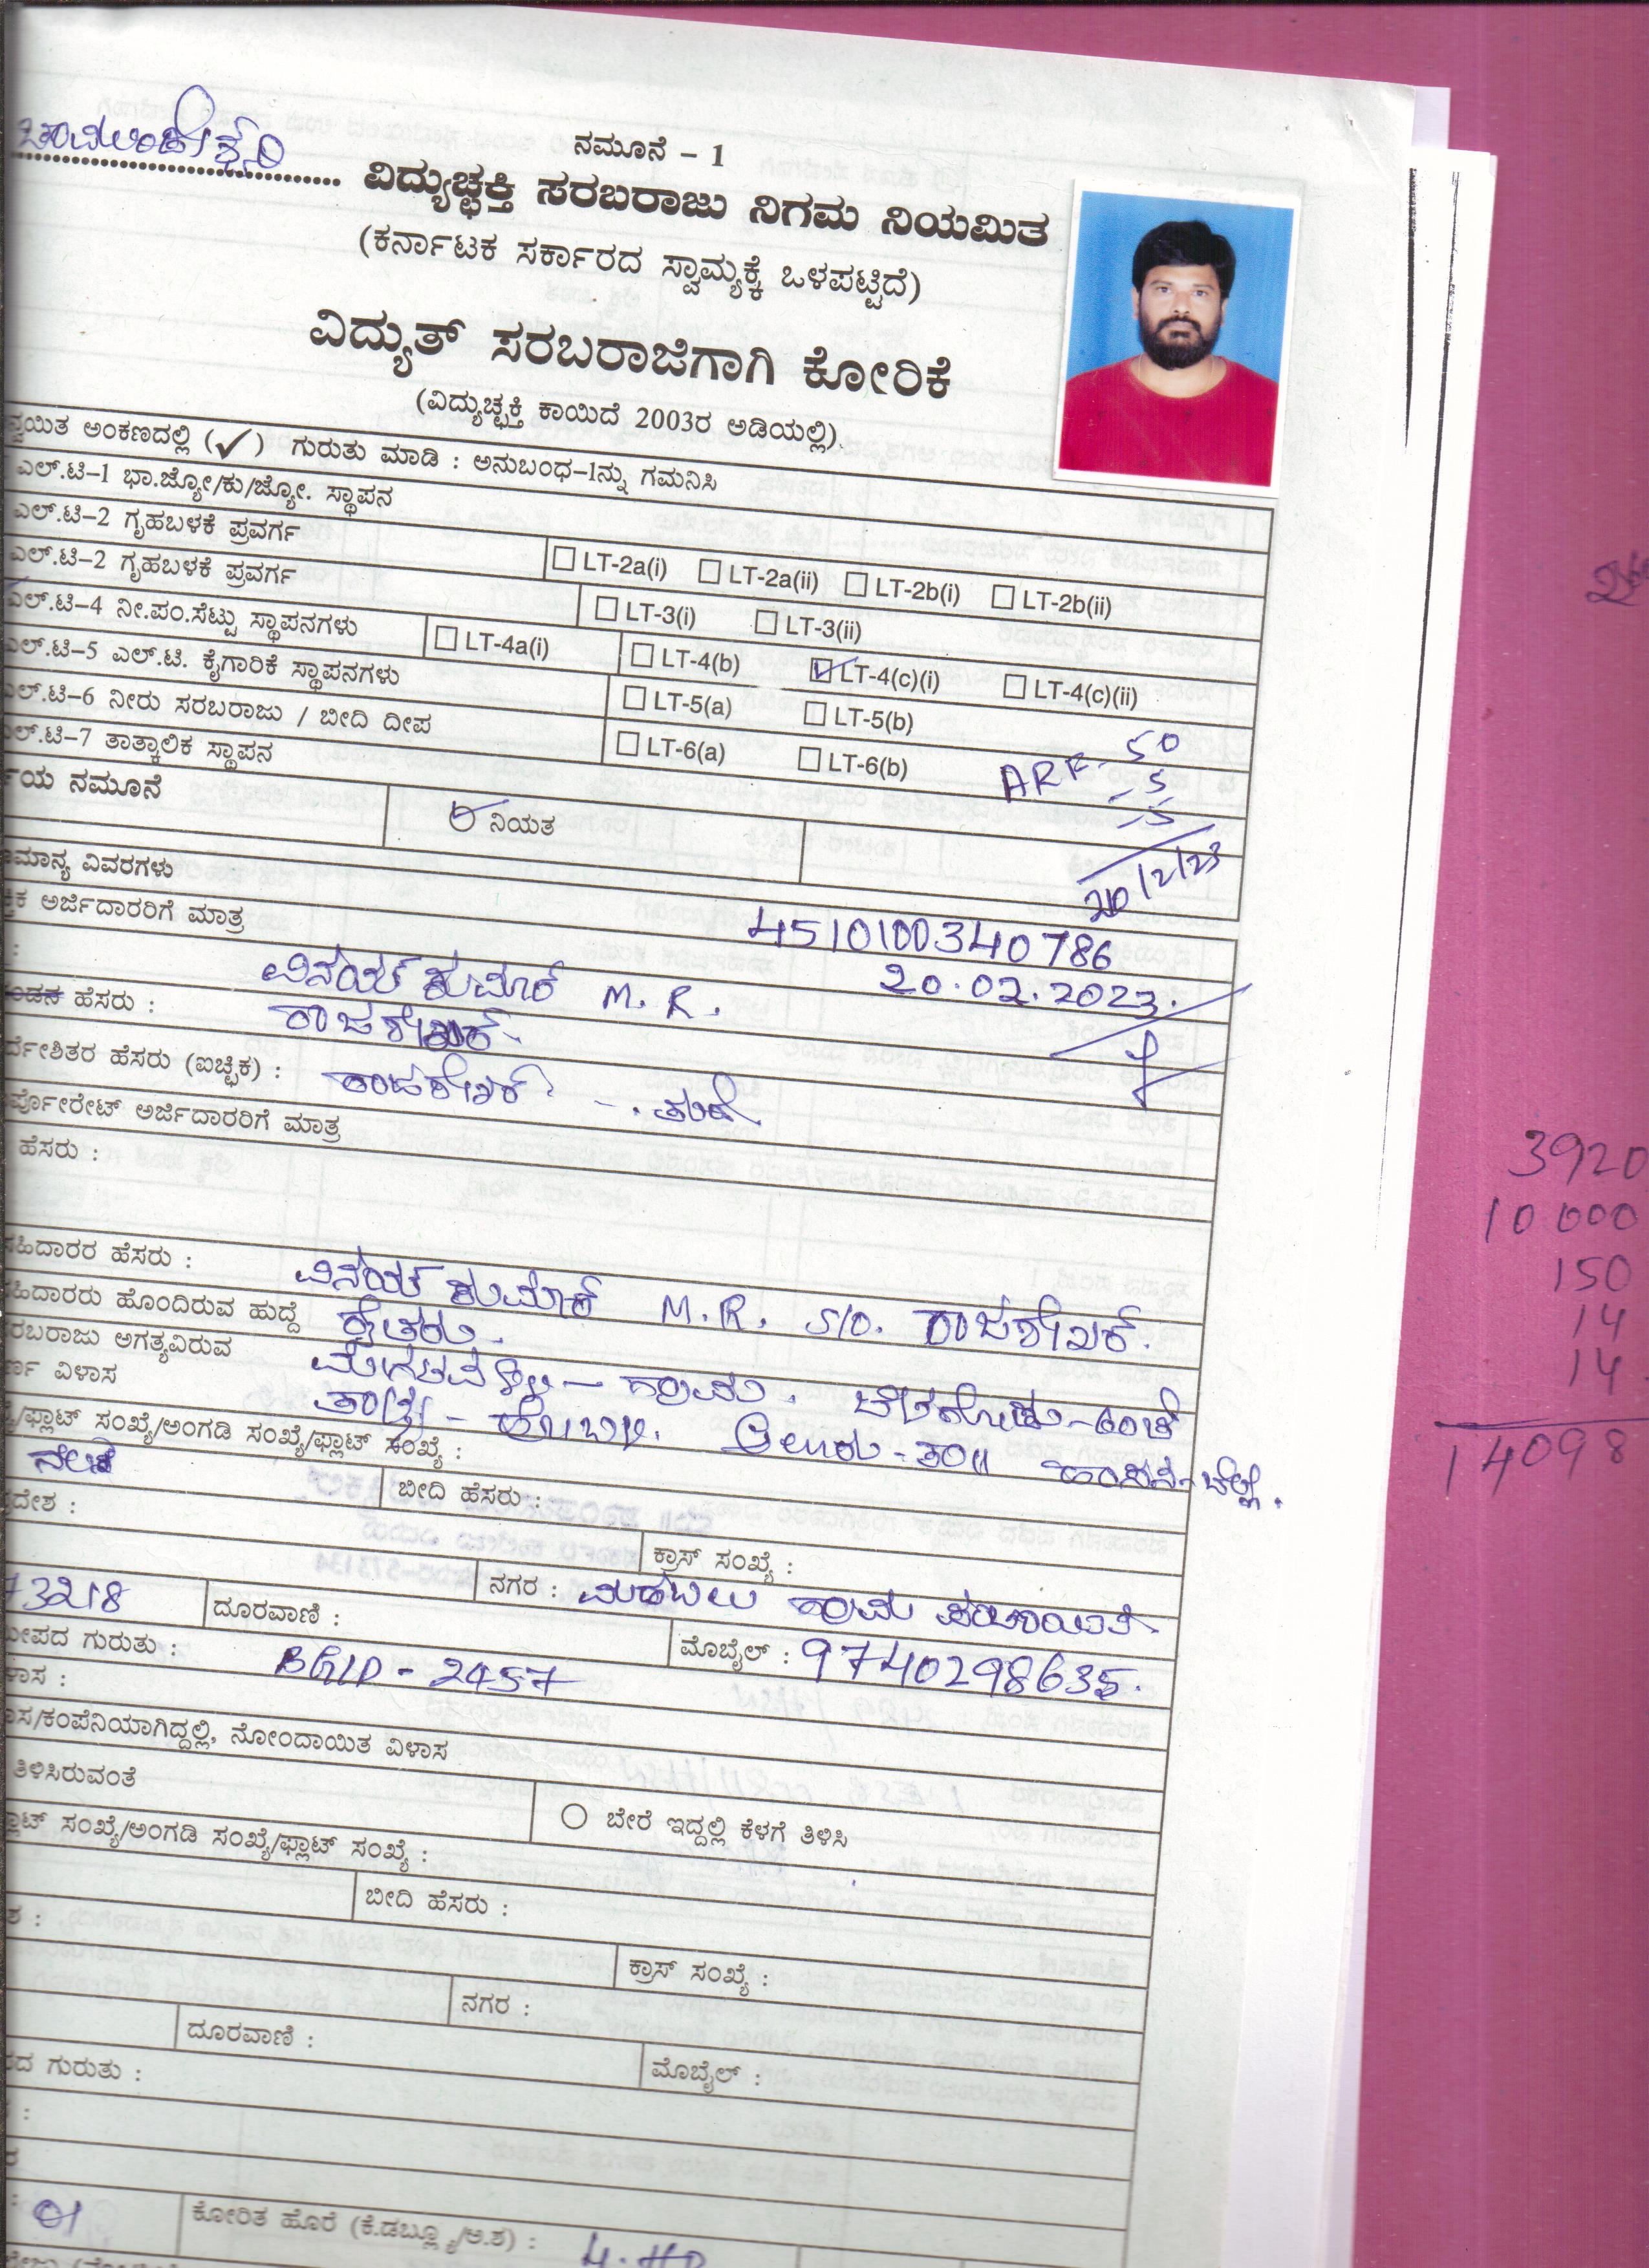 ನಮೂನೆ – 1
ಚಾಮುಂಡೇಶ್ವರಿ ವಿದ್ಯುಚ್ಛಕ್ತಿ ಸರಬರಾಜು ನಿಗಮ ನಿಯಮಿತ
(ಕರ್ನಾಟಕ ಸರ್ಕಾರದ ಸ್ವಾಮ್ಯಕ್ಕೆ ಒಳಪಟ್ಟಿದೆ)
ವಿದ್ಯುತ್ ಸರಬರಾಜಿಗಾಗಿ ಕೋರಿಕೆ
(ವಿದ್ಯುಚ್ಛಕ್ತಿ ಕಾಯಿದೆ 2003ರ ಅಡಿಯಲ್ಲಿ)
ನ್ವಯಿತ ಅಂಕಣದಲ್ಲಿ (✓) ಗುರುತು ಮಾಡಿ : ಅನುಬಂಧ–1ನ್ನು ಗಮನಿಸಿ
ಎಲ್.ಟಿ–1 ಭಾ.ಜ್ಯೋ/ಕು/ಜ್ಯೋ. ಸ್ಥಾಪನ
ಎಲ್.ಟಿ–2 ಗೃಹಬಳಕೆ ಪ್ರವರ್ಗ LT-2a(i) LT-2a(ii) LT-2b(i) LT-2b(ii)
ಎಲ್.ಟಿ–2 ಗೃಹಬಳಕೆ ಪ್ರವರ್ಗ LT-3(i) LT-3(ii)
ಎಲ್.ಟಿ–4 ನೀ.ಪಂ.ಸೆಟ್ಟು ಸ್ಥಾಪನಗಳು LT-4a(i) LT-4(b) LT-4(c)(i) LT-4(c)(ii)
ಎಲ್.ಟಿ–5 ಎಲ್.ಟಿ. ಕೈಗಾರಿಕೆ ಸ್ಥಾಪನಗಳು LT-5(a) LT-5(b)
ಎಲ್.ಟಿ–6 ನೀರು ಸರಬರಾಜು / ಬೀದಿ ದೀಪ LT-6(a) LT-6(b)
ಎಲ್.ಟಿ–7 ತಾತ್ಕಾಲಿಕ ಸ್ಥಾಪನ
ARF - 50
- 5
- 5
20/2/23
ಯ ನಮೂನೆ ನಿಯತ
ಾಮಾನ್ಯ ವಿವರಗಳು
ಕ್ತಿಕ ಅರ್ಜಿದಾರರಿಗೆ ಮಾತ್ರ 4510100340786
: ವಿನಯ್ ಕುಮಾರ್ M. R. 20.02.2023.
ಹೆಸರು : ರಾಜಶೇಖರ್
ರ್ದೇಶಿತರ ಹೆಸರು (ಐಚ್ಛಿಕ) : ರಾಜಶೇಖರ್ - ತಂದೆ
ರ್ಪೋರೇಟ್ ಅರ್ಜಿದಾರರಿಗೆ ಮಾತ್ರ
ಹೆಸರು :
ಸಹಿದಾರರ ಹೆಸರು : ವಿನಯ್ ಕುಮಾರ್ M.R. S/O. ರಾಜಶೇಖರ್.
ಹಿದಾರರು ಹೊಂದಿರುವ ಹುದ್ದೆ ರೈತರು.
ರಬರಾಜು ಅಗತ್ಯವಿರುವ
ರ್ಣ ವಿಳಾಸ ಗ್ರಾಮ. ಅಂಚೆ
ಫ್ಲಾಟ್ ಸಂಖ್ಯೆ/ಅಂಗಡಿ ಸಂಖ್ಯೆ/ಫ್ಲಾಟ್ ಸಂಖ್ಯೆ : ಹೋಬಳಿ. ಆಲೂರು - ತಾ॥ ಹಾಸನ ಜಿಲ್ಲೆ.
ಬೀದಿ ಹೆಸರು :
ದೇಶ :
ಕ್ರಾಸ್ ಸಂಖ್ಯೆ :
ನಗರ : ಮಡಬಲು ಗ್ರಾಮ ಪಂಚಾಯಿತಿ.
73218 ದೂರವಾಣಿ : ಮೊಬೈಲ್ : 9740298635.
ೀಪದ ಗುರುತು : BGLD - 2457
ಳಾಸ :
ಾಸ/ಕಂಪೆನಿಯಾಗಿದ್ದಲ್ಲಿ, ನೋಂದಾಯಿತ ವಿಳಾಸ
ತಿಳಿಸಿರುವಂತೆ ಬೇರೆ ಇದ್ದಲ್ಲಿ ಕೆಳಗೆ ತಿಳಿಸಿ
ಫ್ಲಾಟ್ ಸಂಖ್ಯೆ/ಅಂಗಡಿ ಸಂಖ್ಯೆ/ಫ್ಲಾಟ್ ಸಂಖ್ಯೆ :
ಬೀದಿ ಹೆಸರು :
ಶ :
ಕ್ರಾಸ್ ಸಂಖ್ಯೆ :
ನಗರ :
ದೂರವಾಣಿ : ಮೊಬೈಲ್ :
ಪದ ಗುರುತು :
:
01 ಕೋರಿತ ಹೊರೆ (ಕೆ.ಡಬ್ಲ್ಯೂ/ಅ.ಶ) : 4. HP
3920
10 000
150
14
14
14098